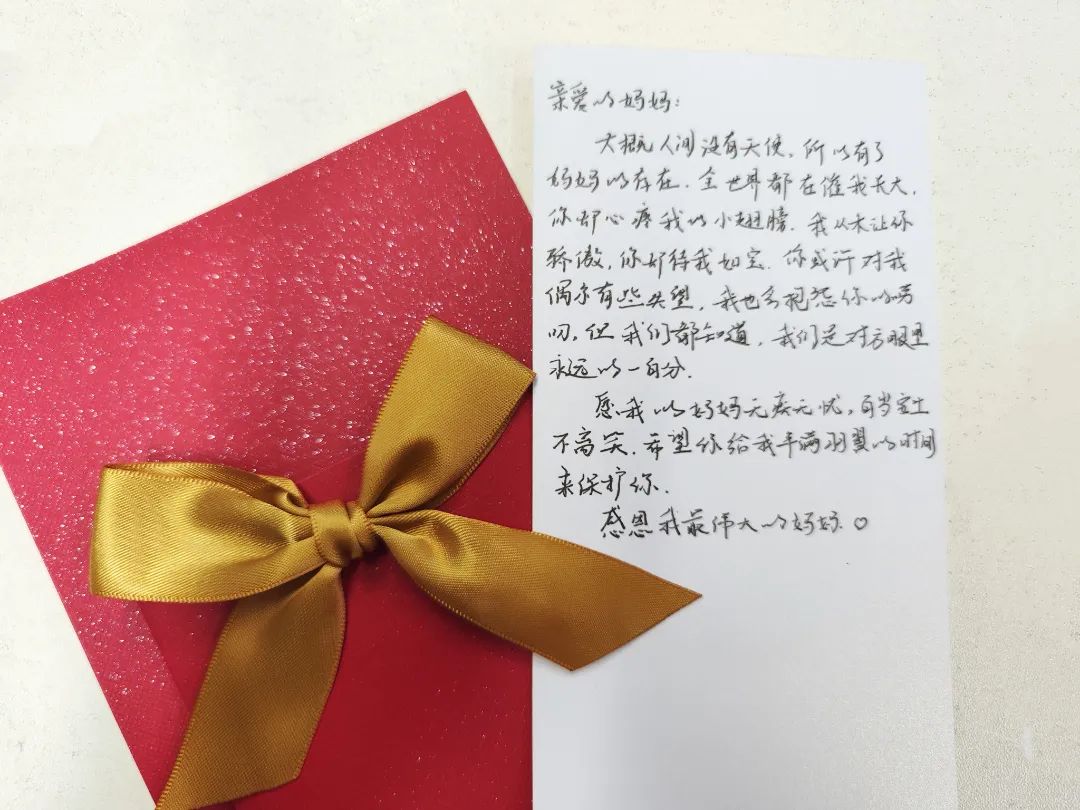 亲爱的妈妈：
大概人间没有天使，所以有了
妈妈的存在。全世界都在催我长大，
你却心疼我的小翅膀。我从未让你
骄傲，你却待我如宝。你或许对我
偶尔有些失望，我也会抱怨你的唠
叨，但我们都知道，我们是对方眼里
永远的一百分。
愿我的妈妈无疾无忧，百岁
不高笑。希望你给我丰满羽翼的时间
来保护你。
感恩我最伟大的妈妈♡